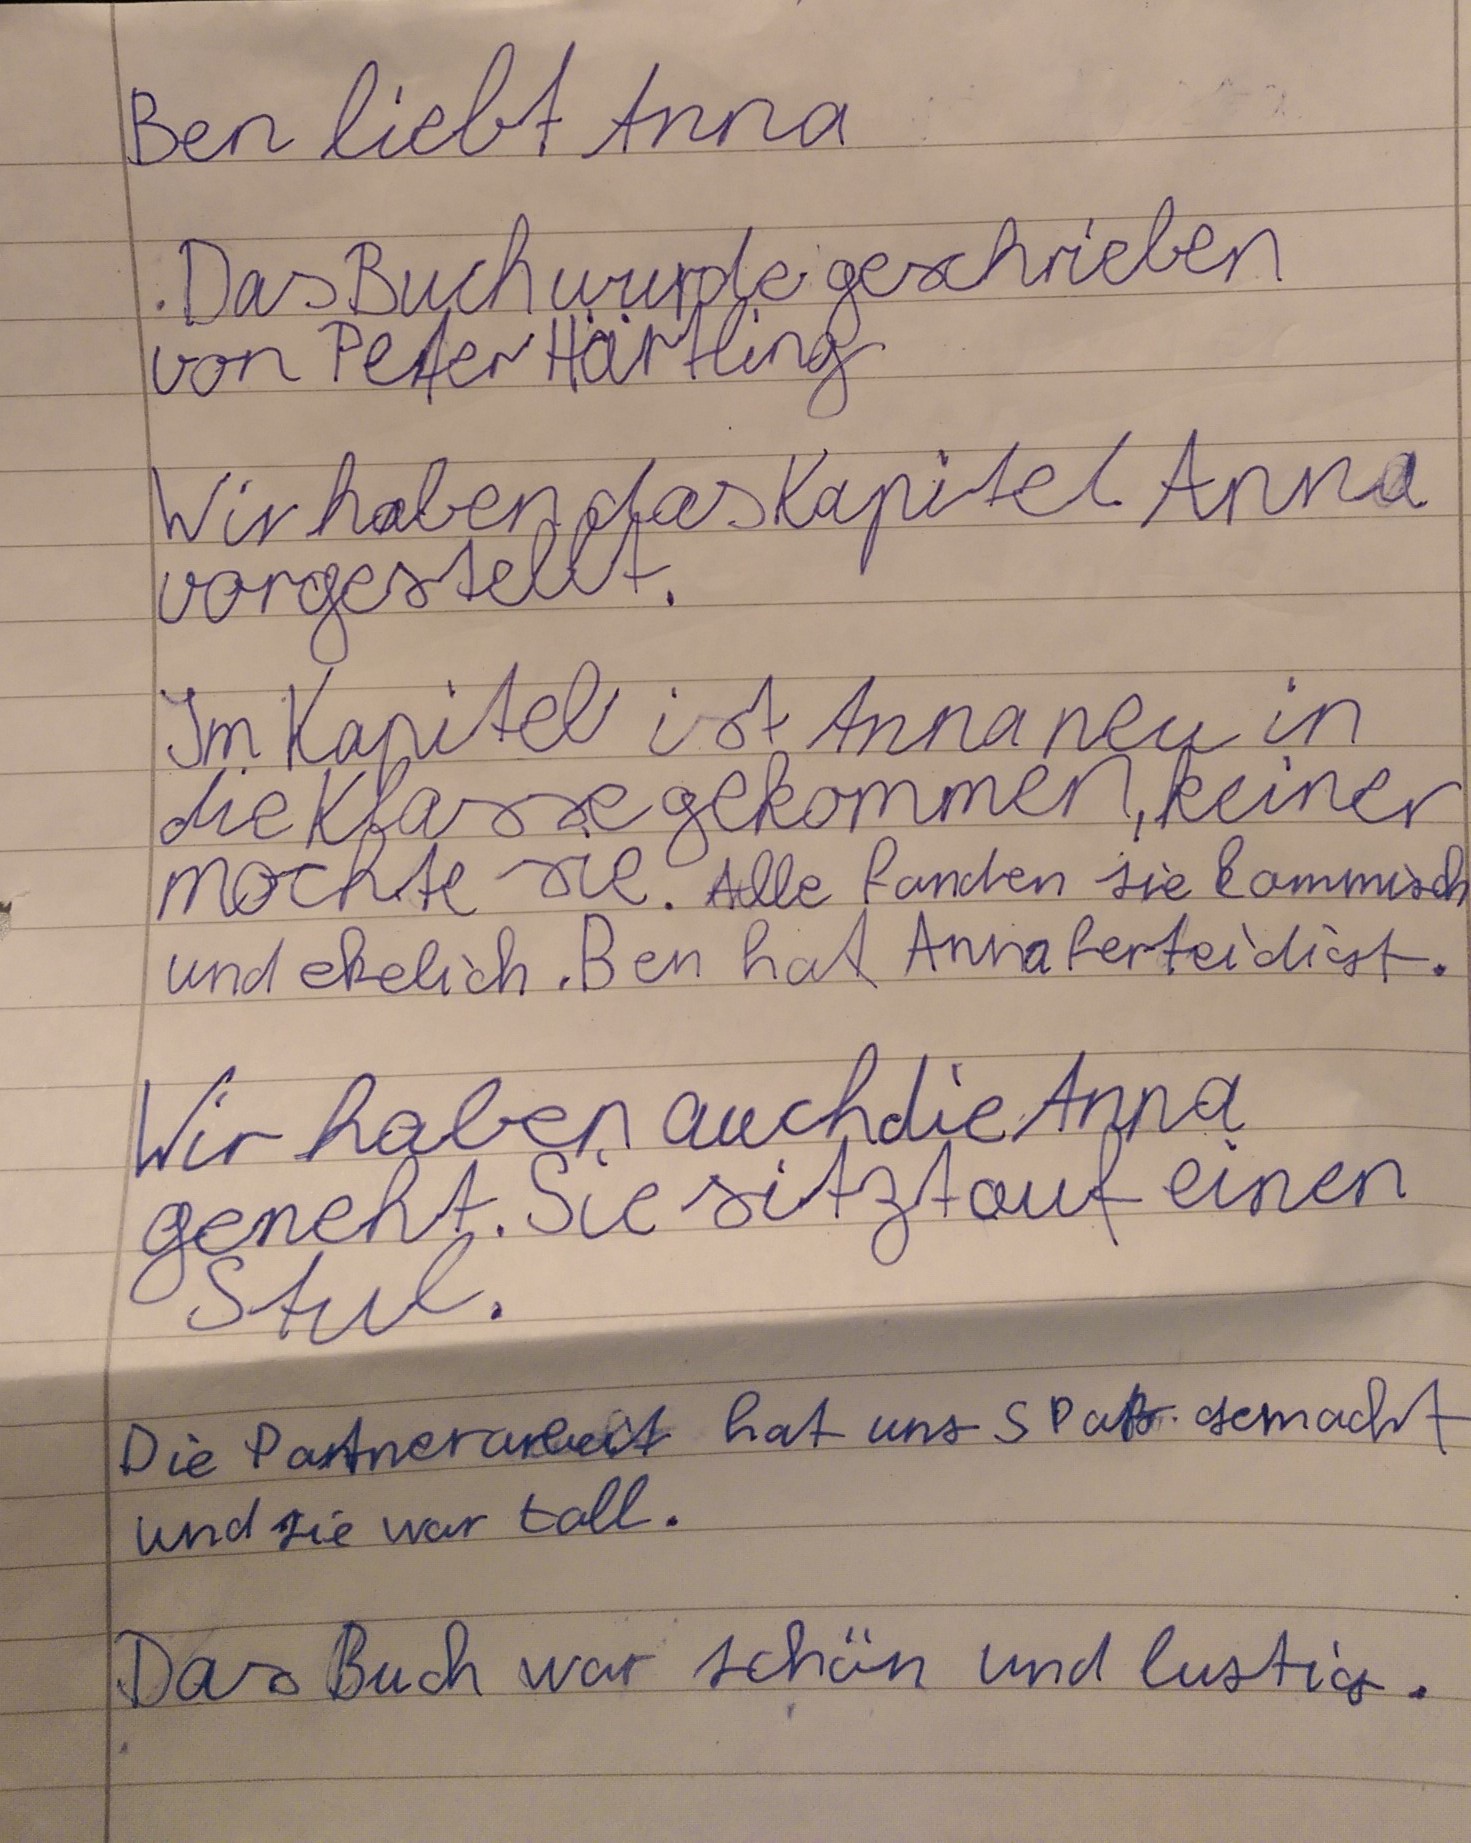 Ben liebt Anna
. Das Buch wurde geschrieben
von Peter Härtling
Wir haben das Kapitel Anna
vorgestellt.
Im Kapitel ist Anna neu in
die Klasse gekommen, keiner
mochte sie. Alle fanden sie kommisch
und ekelich. Ben hat Anna ferteidigt.
Wir haben auch die Anna
geneht. Sie sitzt auf einen
Stul.
Die Partnerarbeit hat uns Spaß gemacht
und sie war toll.
Das Buch war schön und lustig.